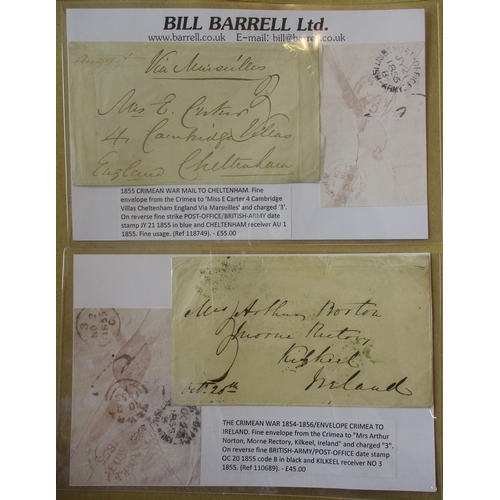 BILL BARRELL Ltd.
www.barrell.co.uk E-mail: bill@barrell.co.uk
Via Marseilles
Mrs E. Carter
4 Cambridge Villas
England Cheltenham
3
1855 CRIMEAN WAR MAIL TO CHELTENHAM. Fine
envelope from the Crimea to 'Miss E Carter 4 Cambridge
Villas Cheltenham England Via Marsvilles' and charged '3'.
On reverse fine strike POST-OFFICE/BRITISH-ARMY date
stamp JY 21 1855 in blue and CHELTENHAM receiver AU 1
1855. Fine usage. (Ref 118749). - £55.00
Mrs Arthur Norton
Morne Rectory
Kilkeel
Ireland
Oct. 20th
3
THE CRIMEAN WAR 1854-1856/ENVELOPE CRIMEA TO
IRELAND. Fine envelope from the Crimea to "Mrs Arthur
Norton, Morne Rectory, Kilkeel, Ireland" and charged "3".
On reverse fine BRITISH-ARMY/POST-OFFICE date stamp
OC 20 1855 code B in black and KILKEEL receiver NO 3
1855. (Ref 110689). - £45.00